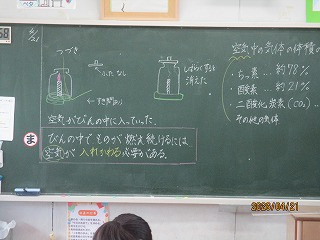 4/21
つづき
ふた なし
← すき間あり
しばらくすると
消えた
空気がびんの中に入っていった。
ま
びんの中でものが燃え続けるには
空気が入れかわる必要がある。
空気中の気体の体積の
・ちっ素 … 約78%
・酸素 … 約21%
・二酸化炭素(CO₂) ‥
その他の気体
2023/04/21